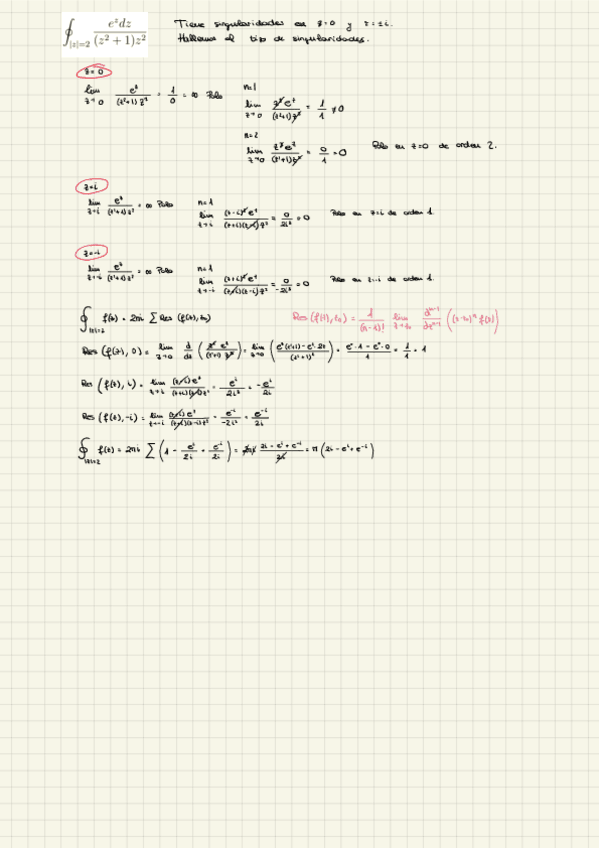 ∮_{|z|=2} e^z dz / (z² + 1)z² Tiene singularidades en z=0 y z=±i.
Hallemos el tipo de singularidades.
z=0
lim_{z→0} e^z/((z²+1)z²) = 1/0 = ∞ Polo
n=1
lim_{z→0} z²e^z/((z²+1)z²) = 1/1 ≠0
n=2
lim_{z→0} z³e^z/((z²+1)z²) = 0/1 =0 Polo en z=0 de orden 2.
z=i
lim_{z→i} e^z/((z²+1)z²) = ∞ Polo n=1
lim_{z→i} (z-i)²e^z/((z+i)(z-i)z²) = 0/2i³ = 0 Polo en z=i de orden 1.
z=-i
lim_{z→-i} e^z/((z²+1)z²) = ∞ Polo n=1
lim_{z→-i} (z+i)²e^z/((z+i)(z-i)z²) = 0/-2i³ = 0 Polo en z=-i de orden 1.
∮_{|z|=2} f(z) = 2πi ∑ Res (f(z), z₀) Res (f(z), z₀) = 1/(n-1)! lim_{z→z₀} d^{n-1}/dz^{n-1} ((z-z₀)^n f(z))
Res (f(z), 0) = lim_{z→0} d/dz (z² e^z/((z²+1) z²)) = lim_{z→0} (e^z(z²+1)-e^z·2z/(z²+1)²) = e⁰·1-e⁰·0/1 = 1/1 = 1
Res (f(z), i) = lim_{z→i} (z-i)e^z/((z+i)(z-i)z²) = e^i/2i³ = -e^i/2i
Res (f(z), -i) = lim_{z→-i} (z+i)e^z/((z+i)(z-i)z²) = e^{-i}/-2i³ = e^{-i}/2i
∮_{|z|=2} f(z) = 2πi ∑ (1 - e^i/2i + e^{-i}/2i) = 2πi (2i-e^i+e^{-i})/2i = π (2i-e^i+e^{-i})